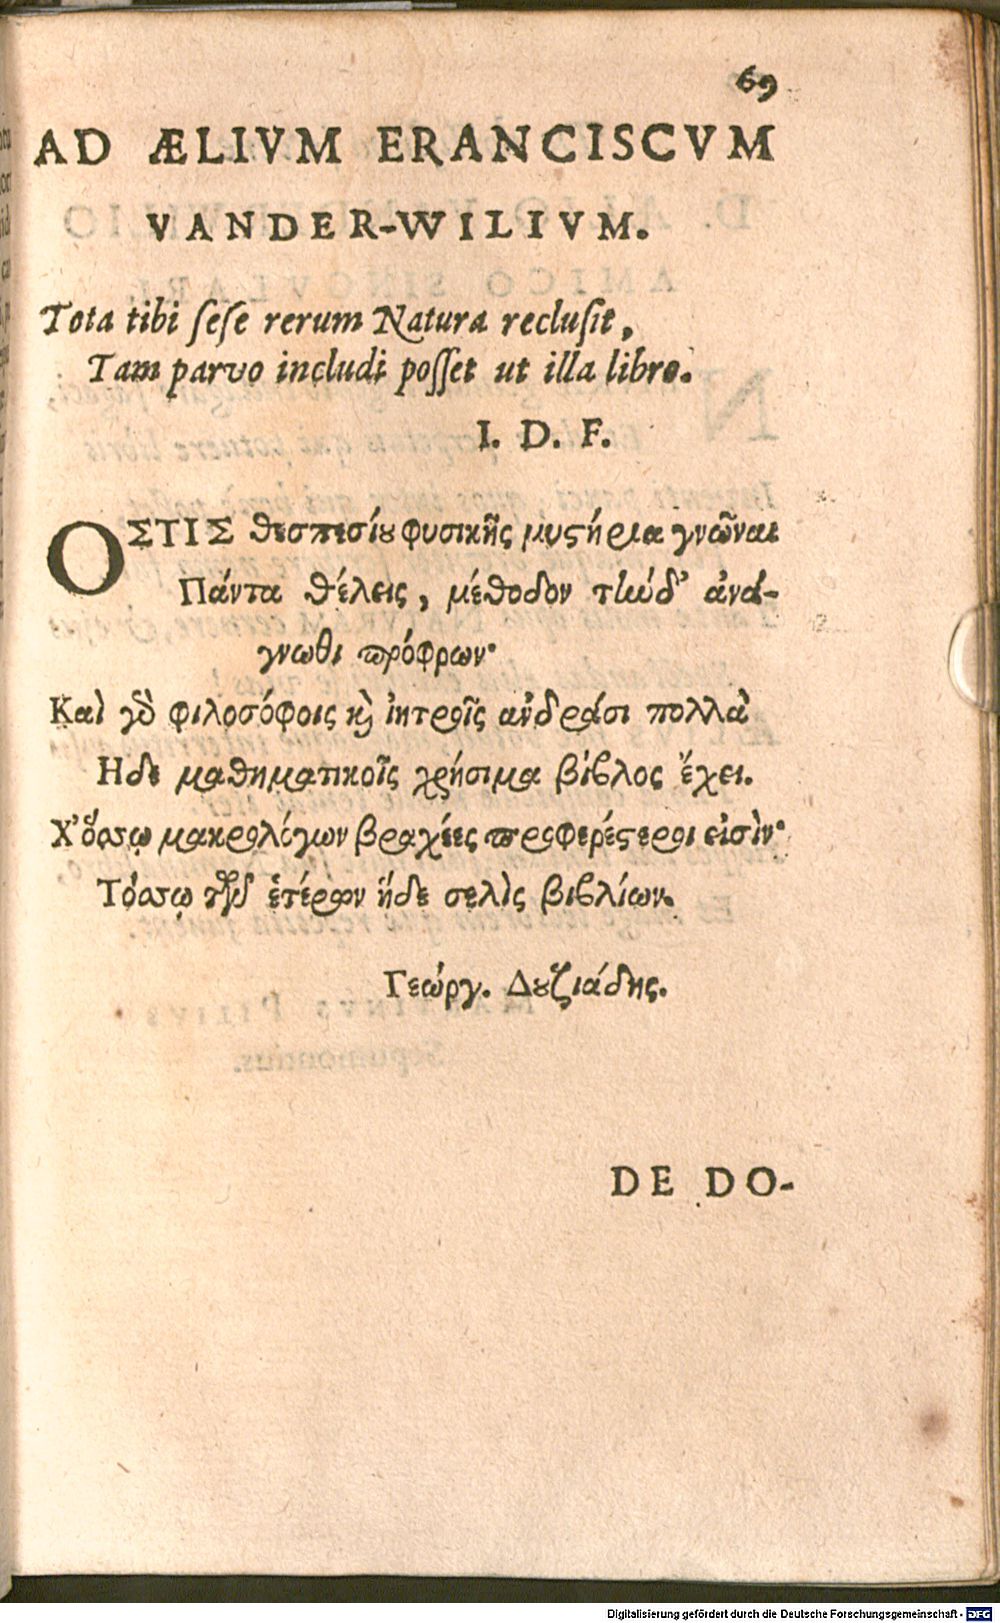 69
AD ÆLIVM ERANCISCVM
VANDER-WILIVM.
Tota tibi ſeſe rerum Natura recluſit,
Tam parvo includi poſſet ut illa libro.
I. D. F.
ΟΣΤΙΣ θεσπεσίȣ φυσικῆς μυϛήρια γνῶναι
Πάντα θέλεις, μέθοδον τὴνδ᾽ ἀνά-
γνωθι πρόφρων·
Καὶ γὸ φιλοσόφοις κỳ ἰητροῖς ἀνδράσι πολλὰ
Ηδε μαθηματικοῖς χρήσιμα βίβλος ἔχει.
Χ᾽ ὅσσῳ μακρολόγων βραχέες προφερέϛεροι εἰσὶν·
Τόσσῳ τῶνδ᾽ ἑτέρων ἥδε σελὶς βιβλίων.
Γεώργ. Δȣζιάδης.
DE DO-
Digitalisierung gefördert durch die Deutsche Forschungsgemeinschaft - DFG